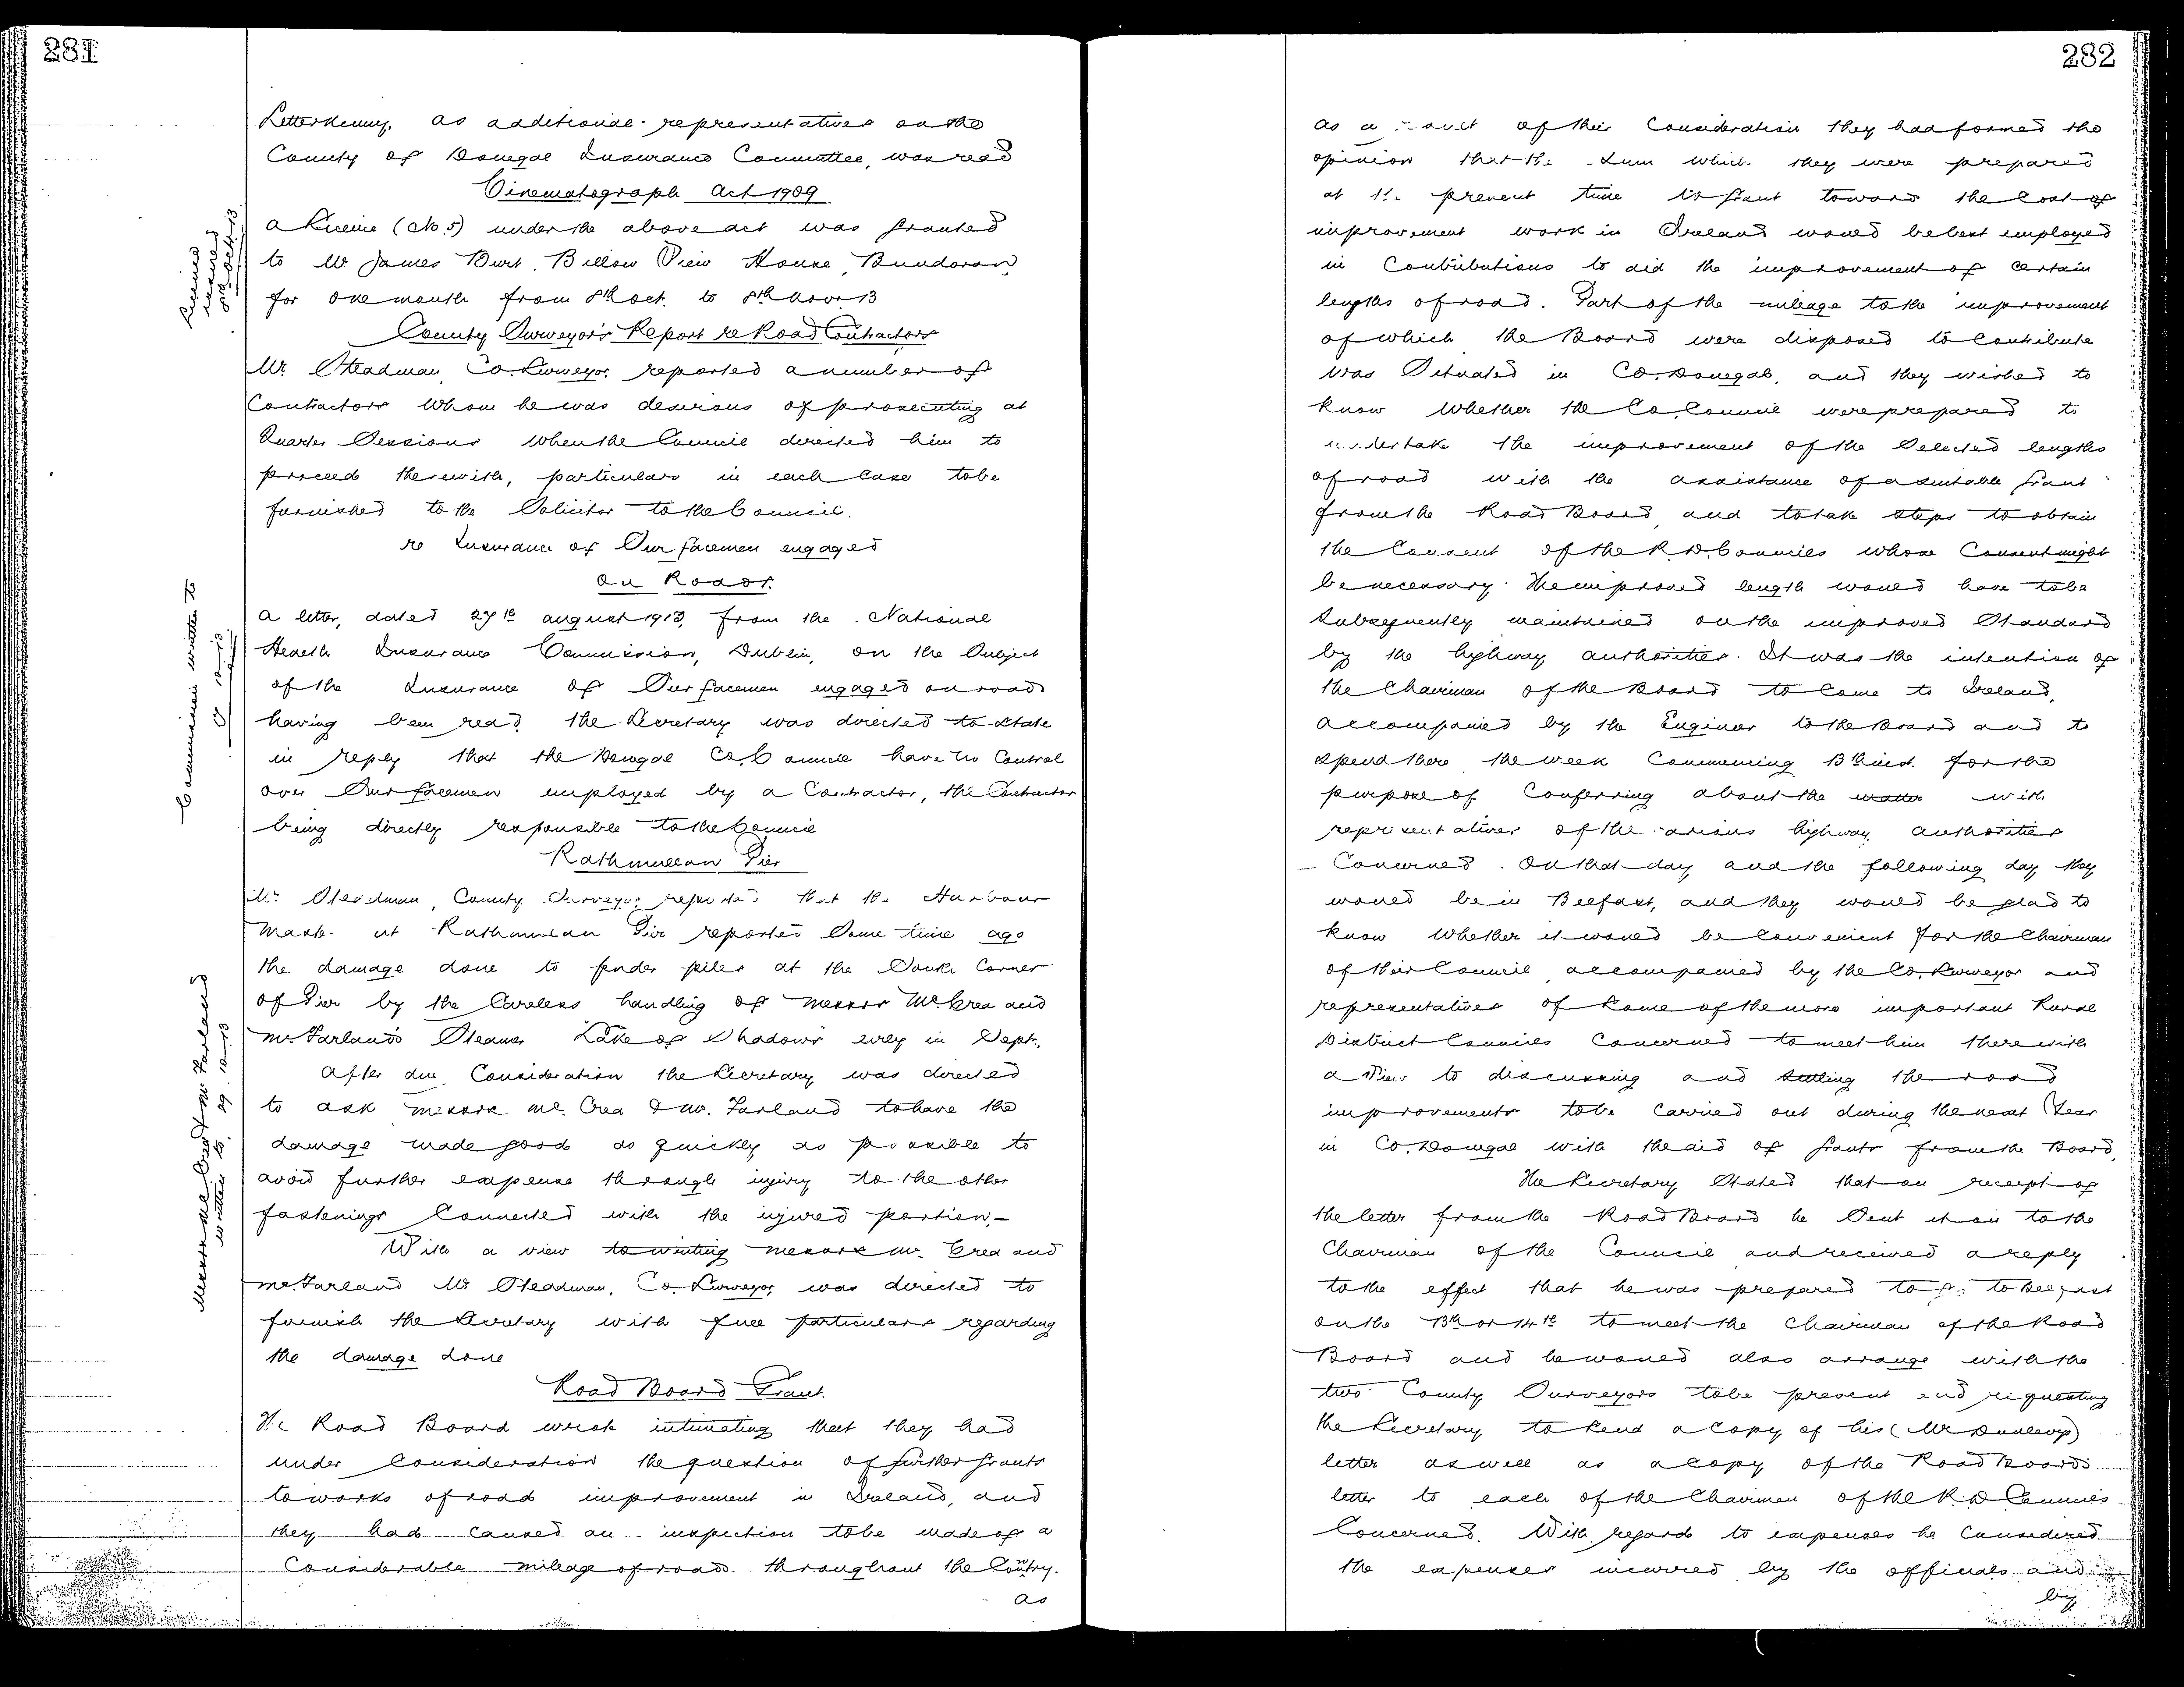 281
Letterkenny, as additional representatives on the
County of Donegal Insurance Committee, was read
Cinematograph Act 1909
A Licence (No. 5) under the above act was granted
to Mr James Burt. Billow View House, Bundoran,
for one month from 8th Oct. to 8th Novr 13
County Surveyor's Report re Road Contractors
Mr. Steadman, Co. Surveyor, reported a number of
Contractors whom he was desirous of prosecuting at
Quarter Sessions when the Council directed him to
proceed therewith, particulars in each case to be
furnished to the Solicitor to the Council.
re Insurance of Surfacemen engaged
on Roads.
A letter, dated 27th August 1913, from the National
Health Insurance Commission, Dublin, on the Subject
of the Insurance of Surfacemen engaged on roads
having been read, the Secretary was directed to state
in reply that the Donegal Co. Council have no Control
over Surfacemen employed by a Contractor, the Contractor
being directly responsible to the Council
Rathmullan Pier
Mr Steadman, County Surveyor, reported that the Harbour
Mastr. at Rathmullan Pier reported some time ago
the damage done to fender piles at the South Corner
of Pier by the Careless handling of Messrs McCrea and
McFarland's Steamer Lake of Shadows early in Sept.
After due Consideration the Secretary was directed
to ask Messrs Mc. Crea & Mc. Farland to have the
damage made good as quickly as possible to
avoid further expense through injury to the other
fastenings Connected with the injured portion.—
With a view to writing Messrs Mc. Crea and
McFarland Mr Steadman, Co. Surveyor, was directed to
furnish the Secretary with full particulars regarding
the damage done
Road Board Grant.
The Road Board wrote intimating that they had
under Consideration the question of further grants
to works of road improvement in Ireland, and
they had caused an inspection to be made of a
Considerable mileage of roads throughout the Country.
as
Licence
issued
8th Oct. 13
Commission written to
10-13
Messrs McCrea & McFarland
written to. 29.10.13
282
as a result of their Consideration they had formed the
opinion that the Sum which they were prepared
at the present time to grant toward the Cost of
improvement work in Ireland would be best employed
in Contributions to aid the improvement of certain
lengths of road. Part of the mileage to the improvement
of which the Board were disposed to Contribute
was Situated in Co. Donegal, and they wished to
know whether the Co. Council were prepared to
undertake the improvement of the Selected lengths
of road with the assistance of a suitable grant
from the Road Board, and to take steps to obtain
the Consent of the R. D. Councils whose Consent might
be necessary. The improved length would have to be
subsequently maintained on the improved Standard
by the highway authorities. It was the intention of
the Chairman of the Board to Come to Ireland,
accompanied by the Engineer to the Board and to
spend there the week Commencing 13th inst. for the
purpose of Conferring about the matter with
representatives of the various highway authorities
Concerned. On that day and the following day they
would be in Belfast, and they would be glad to
know whether it would be Convenient for the Chairman
of their Council, accompanied by the Co. Surveyor and
representatives of some of the more important Rural
District Councils Concerned to meet him there with
a View to discussing and settling the road
improvements to be Carried out during the next Year
in Co. Donegal with the aid of grants from the Board,
The Secretary Stated that on receipt of
the letter from the Road Board he Sent it on to the
Chairman of the Council and received a reply
to the effect that he was prepared to go to Belfast
on the 13th or 14th to meet the Chairman of the Road
Board and he would also arrange with the
two County Surveyors to be present and requesting
the Secretary to send a Copy of his (Mr Dunlevy's)
letter as well as a copy of the Road Board's
letter to each of the Chairmen of the R. D. Councils
Concerned. With regard to expenses he Considered
the expenses incurred by the officials and
by